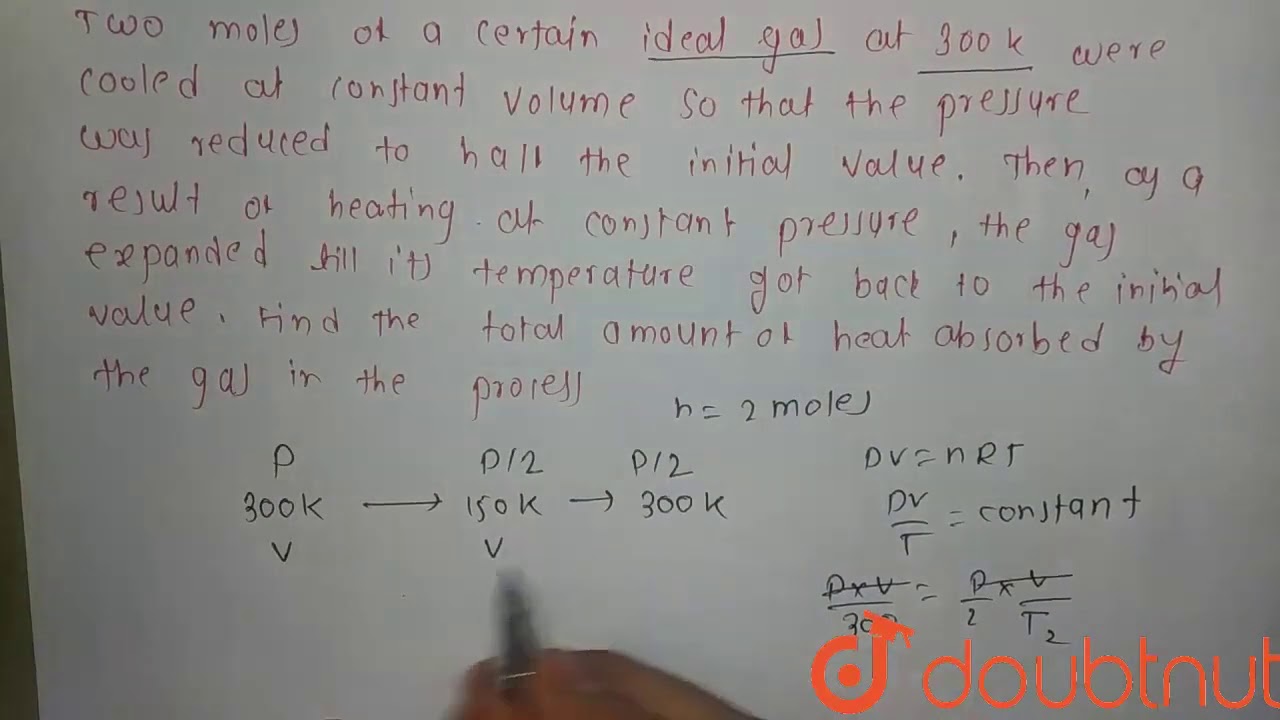 Two moles of a certain ideal gas at 300 k were
cooled at constant volume so that the pressure
was reduced to half the initial value. Then, as a
result of heating at constant pressure, the gas
expanded till its temperature got back to the initial
value. Find the total amount of heat absorbed by
the gas in the process
n = 2 moles
P P/2 P/2
300K → 150K → 300K
V V
PV = nRT
PV/T = constant
P×V/300 = P/2 × V/T2
doubtnut